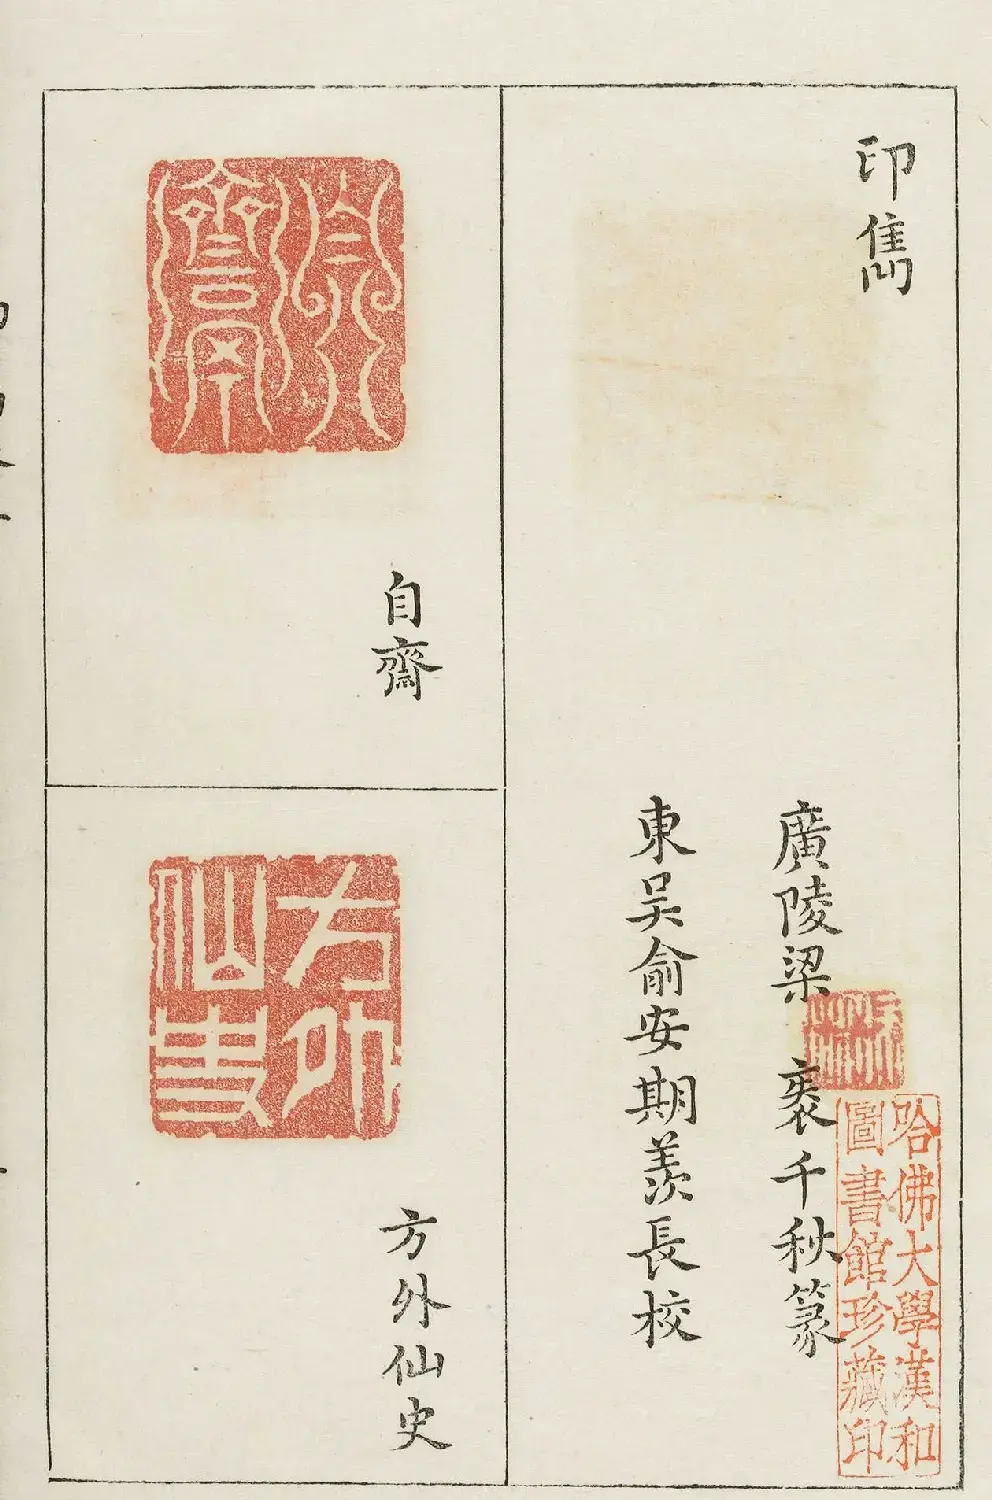 印雋
廣陵梁 袠千秋篆
東吴俞安期羨長校
哈佛大學漢和
圖書館珍藏印
自齋
方外
仙史
方外仙史